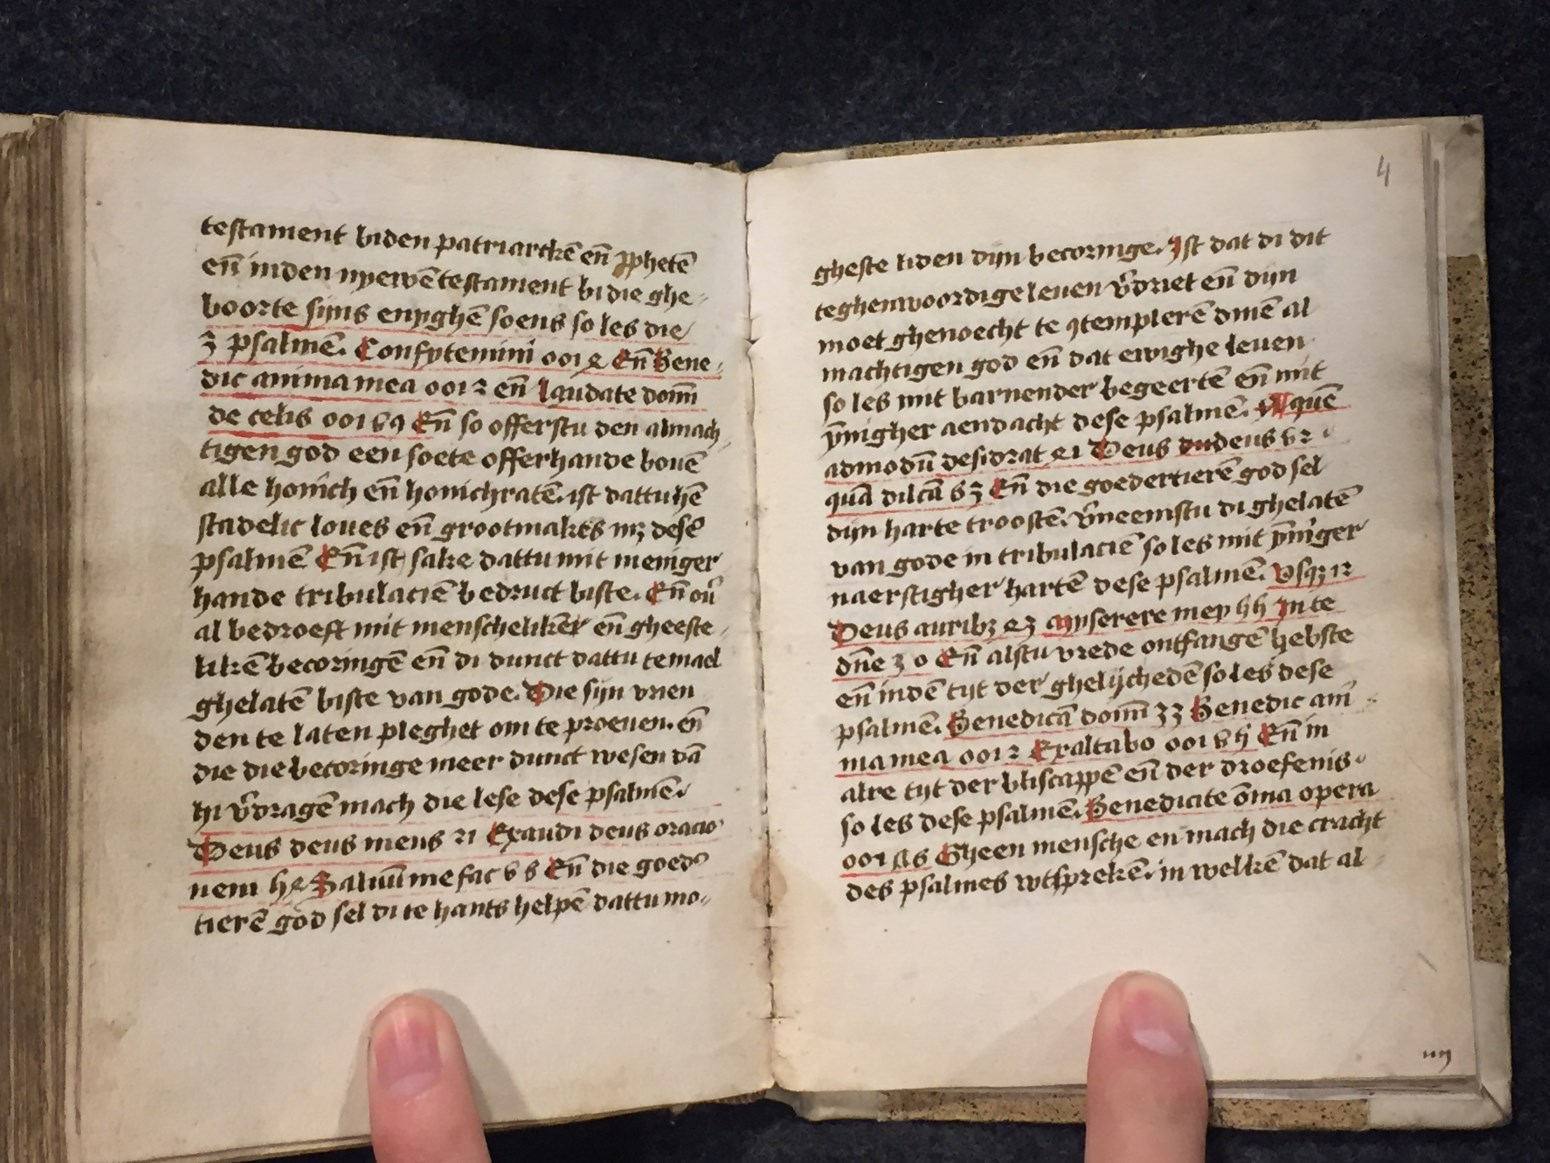 testament biden patriarckē en̄ ꝓphetē
en̄ inden nyewē testament bi die ghe
boorte sijns enyghē soens so les die
3 psalmē. Confytemini 001 ꝝ En̄ Bene
dic anima mea 0012 en̄ laudate dom̄
de celis 001 En̄ so offerstu den almach
tigen god een soete offerhande bouē
alle honich en̄ honichratē. ist dattu hē
stadelic loues en̄ grootmakes mꝫ desē
psalmē En̄ ist sake dattu mit meniger
hande tribulaciē bedruct biste. En̄ ou᷑
al bedroeft mit menscheliker en̄ gheeste
likē becoringē en̄ di dunct dattu temael
ghelatē biste van gode. Die sijn vrien
den te laten pleghet om te proeuen. en̄
die die becoringe meer dunct wesen dā
hi v᷑dragē mach die lese dese psalmē.
Deus deus meus 21 Exaudi deus oracio
nem Saluū me fac En̄ die goed᷑
tierē god sel di te hants helpē dattu mo
4
gheste liden dijn becoringe. Ist dat di dit
teghenwoordige leuen v᷑driet en̄ dijn
moet ghenoecht te ꝯtemplerē dinē al
machtigen god en̄ dat ewighe leuen
so les mit barnender begeertē en̄ mit
ȳnigher aendacht dese psalmē. quē
admodū desidrat Deus deus
quā dilcā En̄ die goedertierē god sel
dijn harte troostē. v᷑neemstu di ghelatē
van gode in tribulaciē so les mit ȳniger
naerstigher hartē dese psalmē. vsqꝫ 12
Deus auribꝫ miserere mey In te
dn̄e 30 En̄ alstu vrede ontfangē hebste
en̄ indē tijt der ghelijchedē so les dese
psalmē. Benedicā dom̄ 33 Benedic ani
ma mea 0012 Exaltabo 001 En̄ in
alre tijt der bliscappē en̄ der droefenis
so les dese psalmē. Benedicite om̄ia opera
001 Gheen mensche en mach die cracht
des psalmes wtsprekē. in welkē dat al
iiij